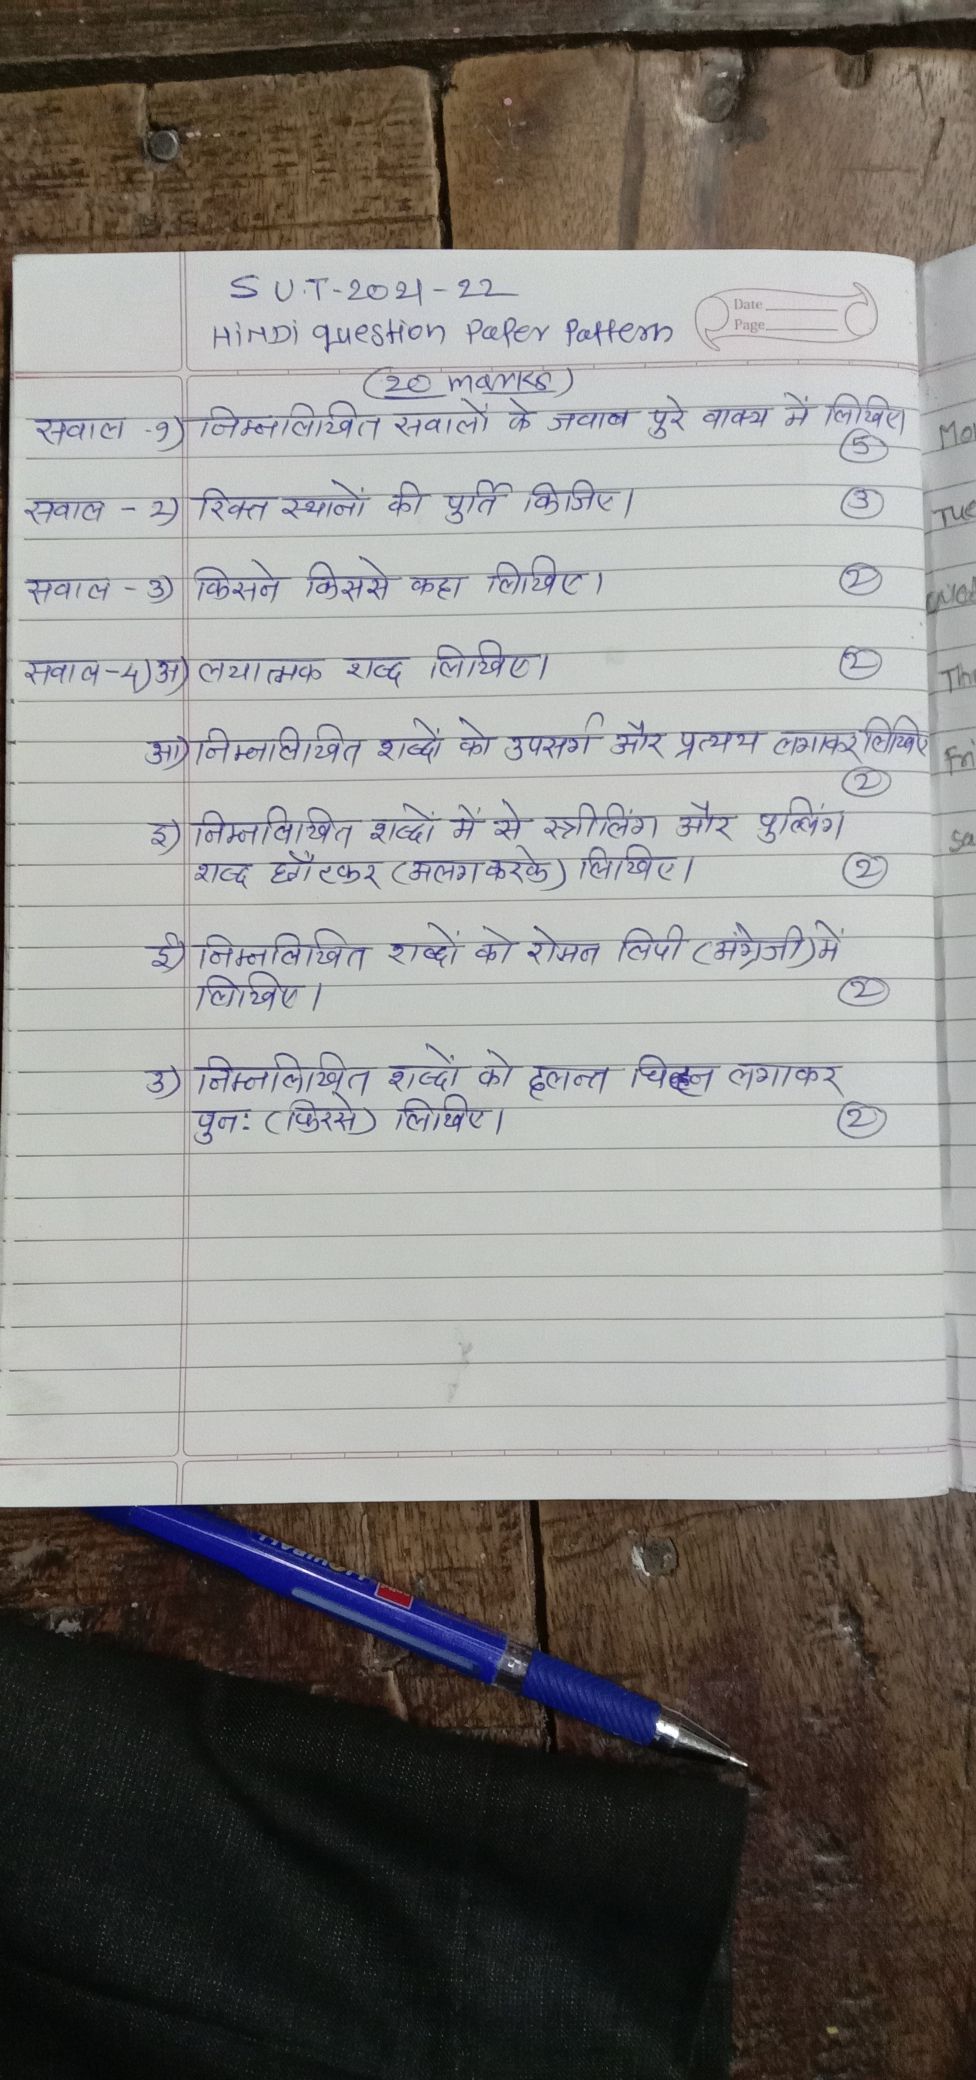 S U.T-2021-22
HiNDi question Paper Pattern
Date
Page
(20 marks)
सवाल -१) निम्नलिखित सवालों के जवाब पुरे वाक्य में लिखिए।
5
सवाल - २) रिक्त स्थानों की पुर्ति किजिए।
3
सवाल - ३) किसने किससे कहा लिखिए।
2
सवाल-4)अ) लयात्मक शब्द लिखिए।
2
आ) निम्नलिखित शब्दों को उपसर्ग और प्रत्यय लगाकर लिखिए
2
इ) निम्नलिखित शब्दों में से स्त्रीलिंग और पुल्लिंग
शब्द छाँटकर (अलग करके) लिखिए।
2
ई) निम्नलिखित शब्दों को रोमन लिपी (अंग्रेजी) में
लिखिए।
2
उ) निम्नलिखित शब्दों को हलन्त चिह्न लगाकर
पुनः (फिरसे) लिखिए।
2
Mo
Tue
Wed
Th
Fri
Sa